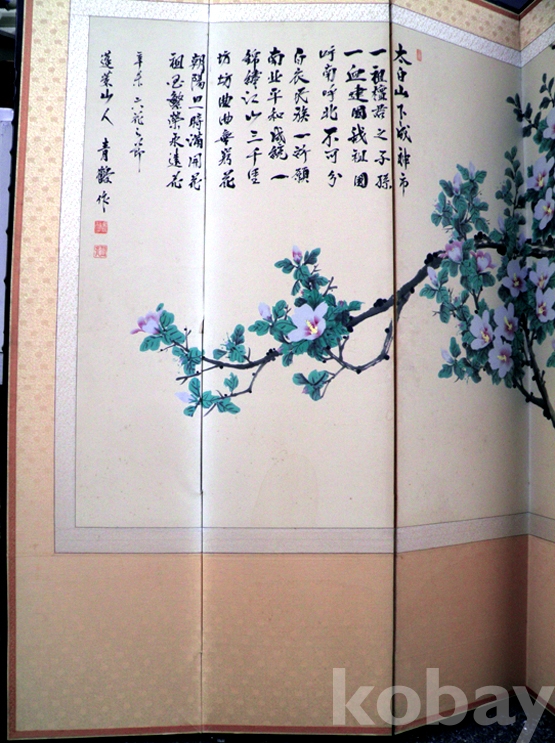 太白山下成神市
一祖檀君之子孫
一血建國我祖國
呼南呼北不可分
白衣民族一祈願
南北平和成統一
錦繡江山三千里
坊坊曲曲無窮花
朝陽口時滿開花
祖國繁榮永遠花
辛未六花之節
蓬萊山人 青 作
kobay